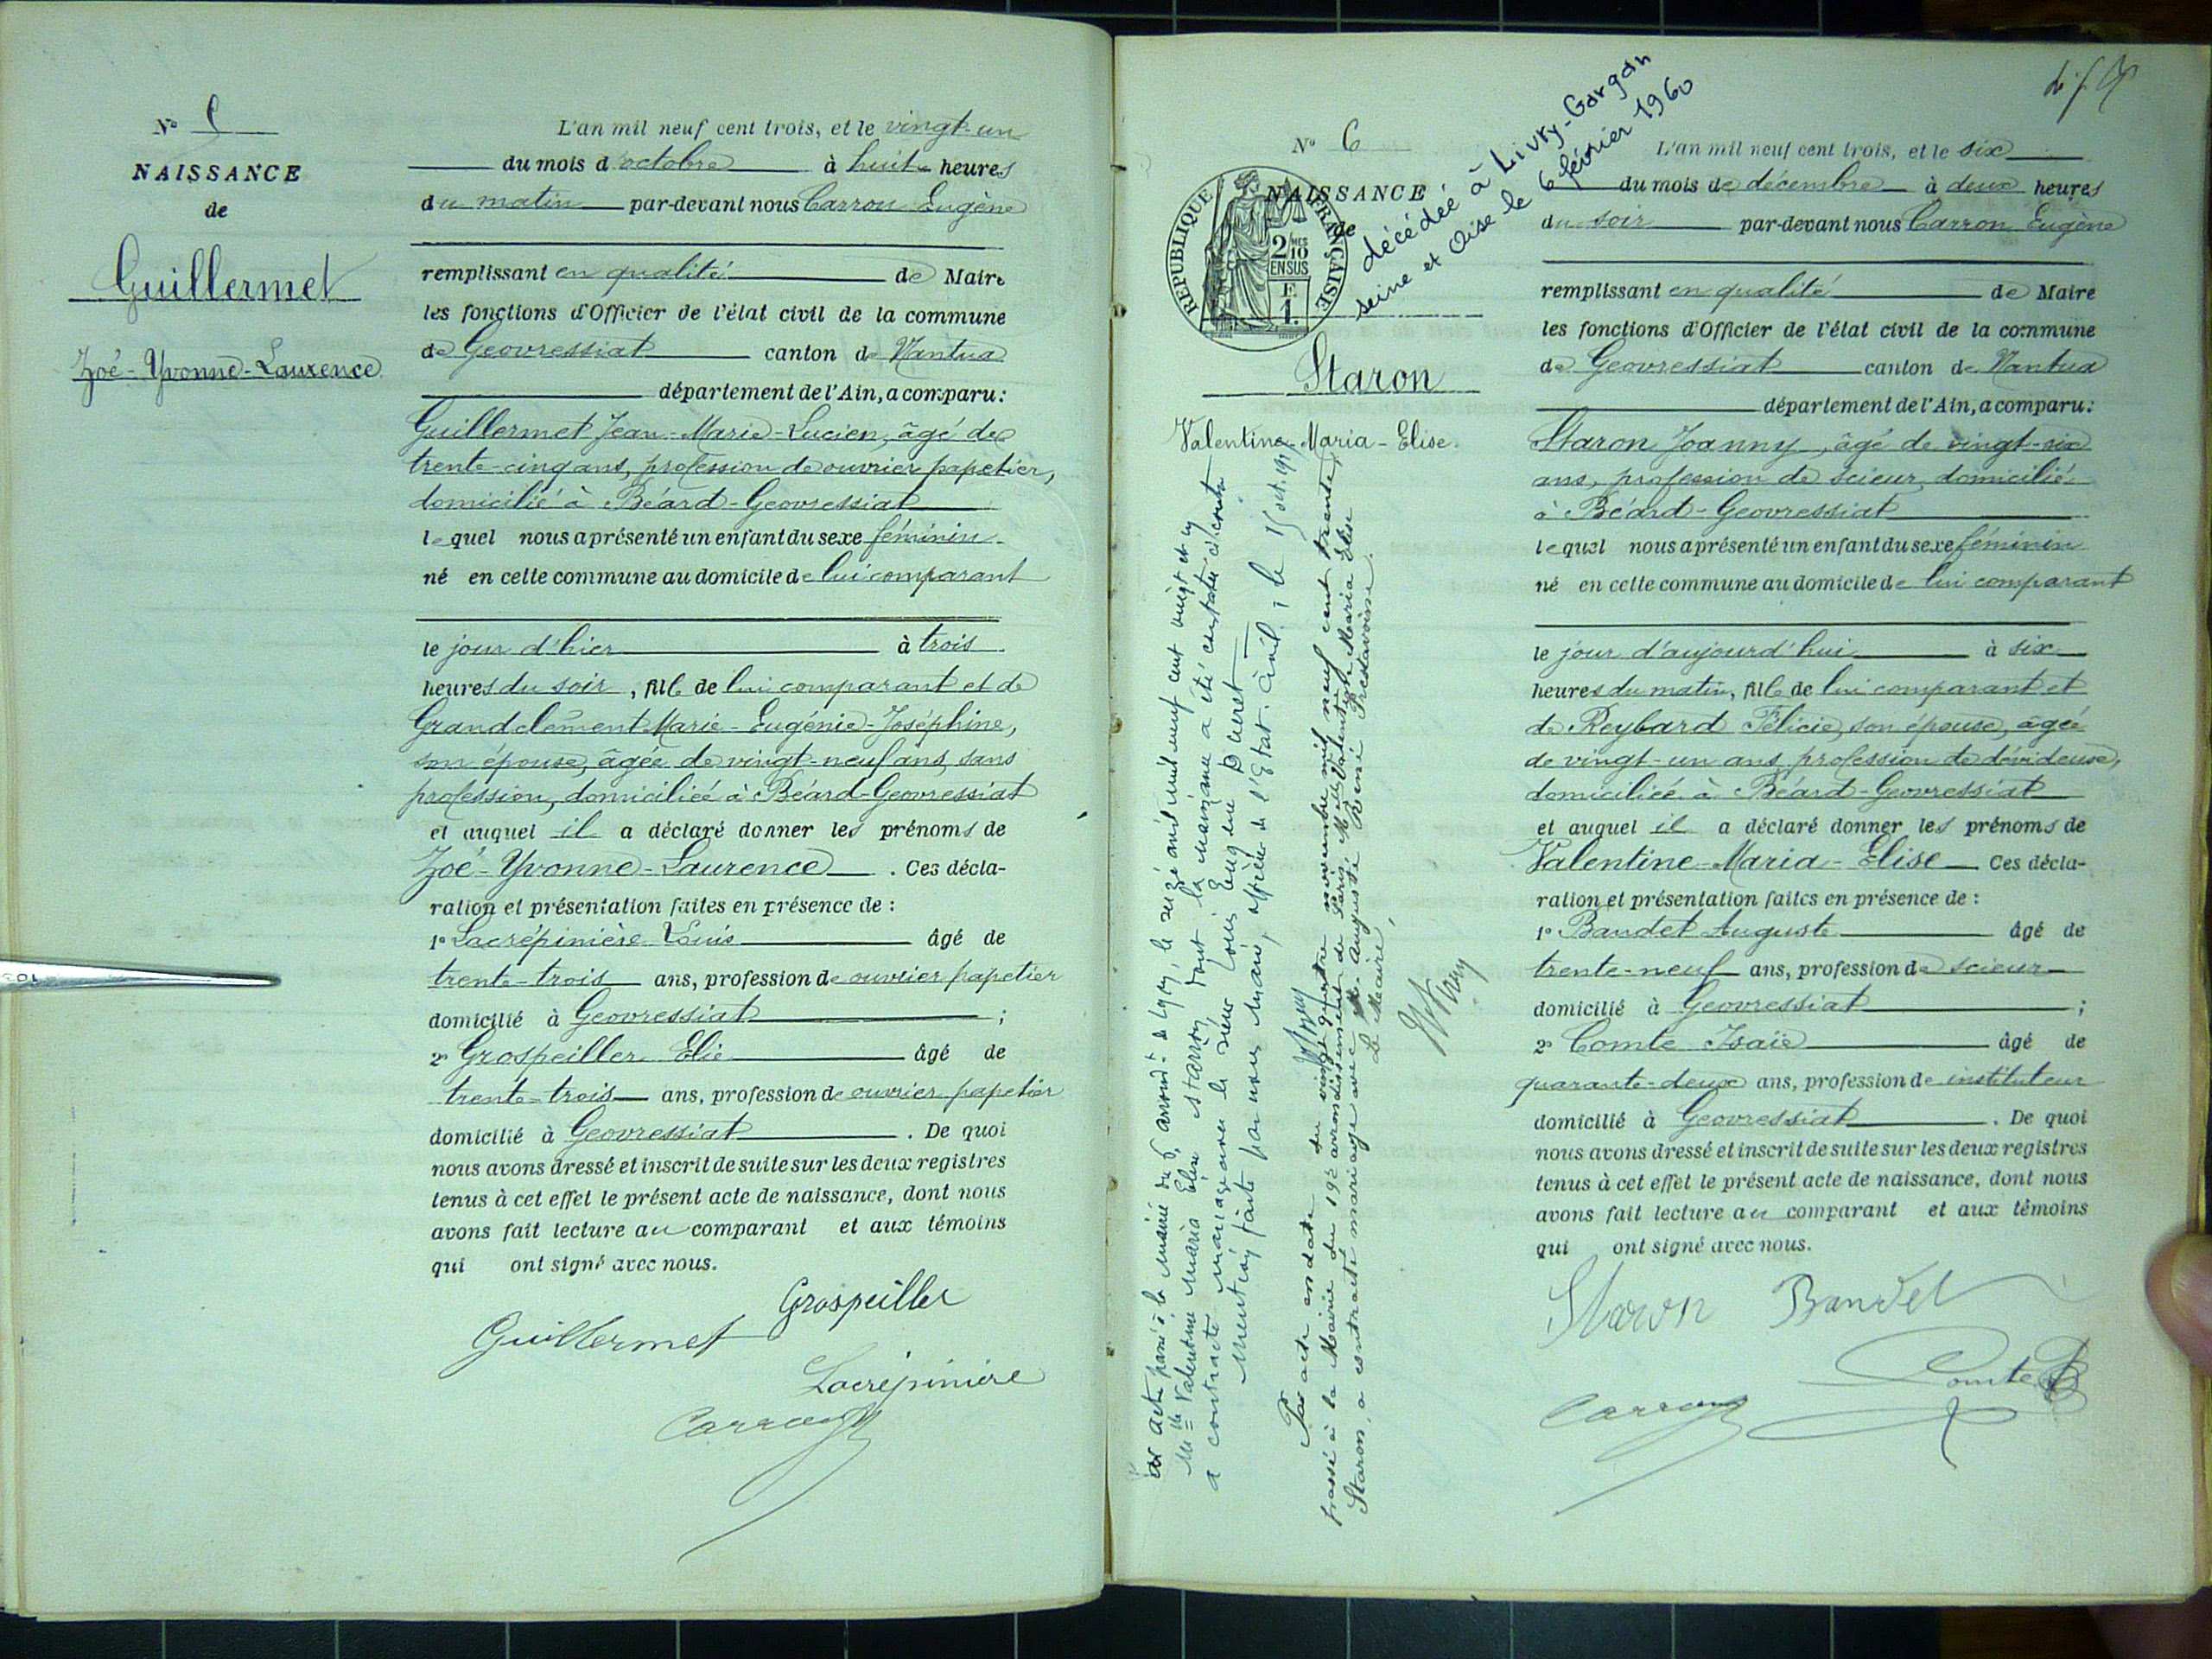 N°
NAISSANCE
de
Guillermet
Zoé-Yvonne-Laurence
L'an mil neuf cent trois, et le vingt-un
du mois d'octobre à huit heures
du matin par-devant nous Carron Eugène
remplissant en qualité de Maire
les fonctions d'Officier de l'état civil de la commune
de Geovressiat canton de Nantua
département de l'Ain, a comparu:
Guillermet Jean-Marie-Lucien, âgé de
trente-cinq ans, profession de ouvrier papetier,
domicilié à Béard-Geovressiat
lequel nous a présenté un enfant du sexe féminin
né en cette commune au domicile de lui comparant
le jour d'hier à trois
heures du soir, fille de lui comparant et de
Grandclément Marie-Eugénie-Joséphine,
son épouse, âgée de vingt-neuf ans, sans
profession, domiciliée à Béard-Geovressiat
et auquel il a déclaré donner les prénoms de
Zoé-Yvonne-Laurence. Ces décla-
ration et présentation faites en présence de :
1° Lacrépinière Louis âgé de
trente-trois ans, profession de ouvrier papetier
domicilié à Geovressiat ;
2° Grospeiller Elie âgé de
trente-trois ans, profession de ouvrier papetier
domicilié à Geovressiat. De quoi
nous avons dressé et inscrit de suite sur les deux registres
tenus à cet effet le présent acte de naissance, dont nous
avons fait lecture au comparant et aux témoins
qui ont signé avec nous.
Grospeiller
Guillermet
Lacrépinière
Carron
N° 6
NAISSANCE
de
RÉPUBLIQUE FRANÇAISE
2/10 MES
EN SUS
F.
1.
décédée à Livry-Gargan
seine et Oise le 6 février 1960
Staron
Valentine-Maria-Elise.
acte passé à la mairie du 6e arrondt de Lyon, le seize août mil neuf cent vingt et un
Melle Valentine Maria Elise Staron dont la naissance a été constatée ci-contre
a contracté mariage avec le sieur Louis Eugène Ducret
Mention faite par nous Maire, officier de l'Etat-Civil, le
Par acte en date du vingt quatre novembre mil neuf cent trente,
passé à la Mairie du 19e arrondissement de Paris Melle Valentine Maria Elise
Staron, a contracté mariage avec M. Auguste René Prestavoine.
Le Maire,
L'an mil neuf cent trois, et le six
du mois de décembre à deux heures
du soir par-devant nous Carron Eugène
remplissant en qualité de Maire
les fonctions d'Officier de l'état civil de la commune
de Geovressiat canton de Nantua
département de l'Ain, a comparu:
Staron Joanny, âgé de vingt-six
ans, profession de scieur, domicilié
à Béard-Geovressiat
lequel nous a présenté un enfant du sexe féminin
né en cette commune au domicile de lui comparant
le jour d'aujourd'hui à six
heures du matin, fille de lui comparant et
de Reybard Félicie, son épouse, âgée
de vingt-un ans, profession de dévideuse,
domiciliée à Béard-Geovressiat
et auquel il a déclaré donner les prénoms de
Valentine-Maria-Elise Ces décla-
ration et présentation faites en présence de :
1° Bandet Auguste âgé de
trente-neuf ans, profession de scieur
domicilié à Geovressiat ;
2° Comte Isaïe âgé de
quarante-deux ans, profession de instituteur
domicilié à Geovressiat. De quoi
nous avons dressé et inscrit de suite sur les deux registres
tenus à cet effet le présent acte de naissance, dont nous
avons fait lecture au comparant et aux témoins
qui ont signé avec nous.
Staron Bandet
Comte
Carron